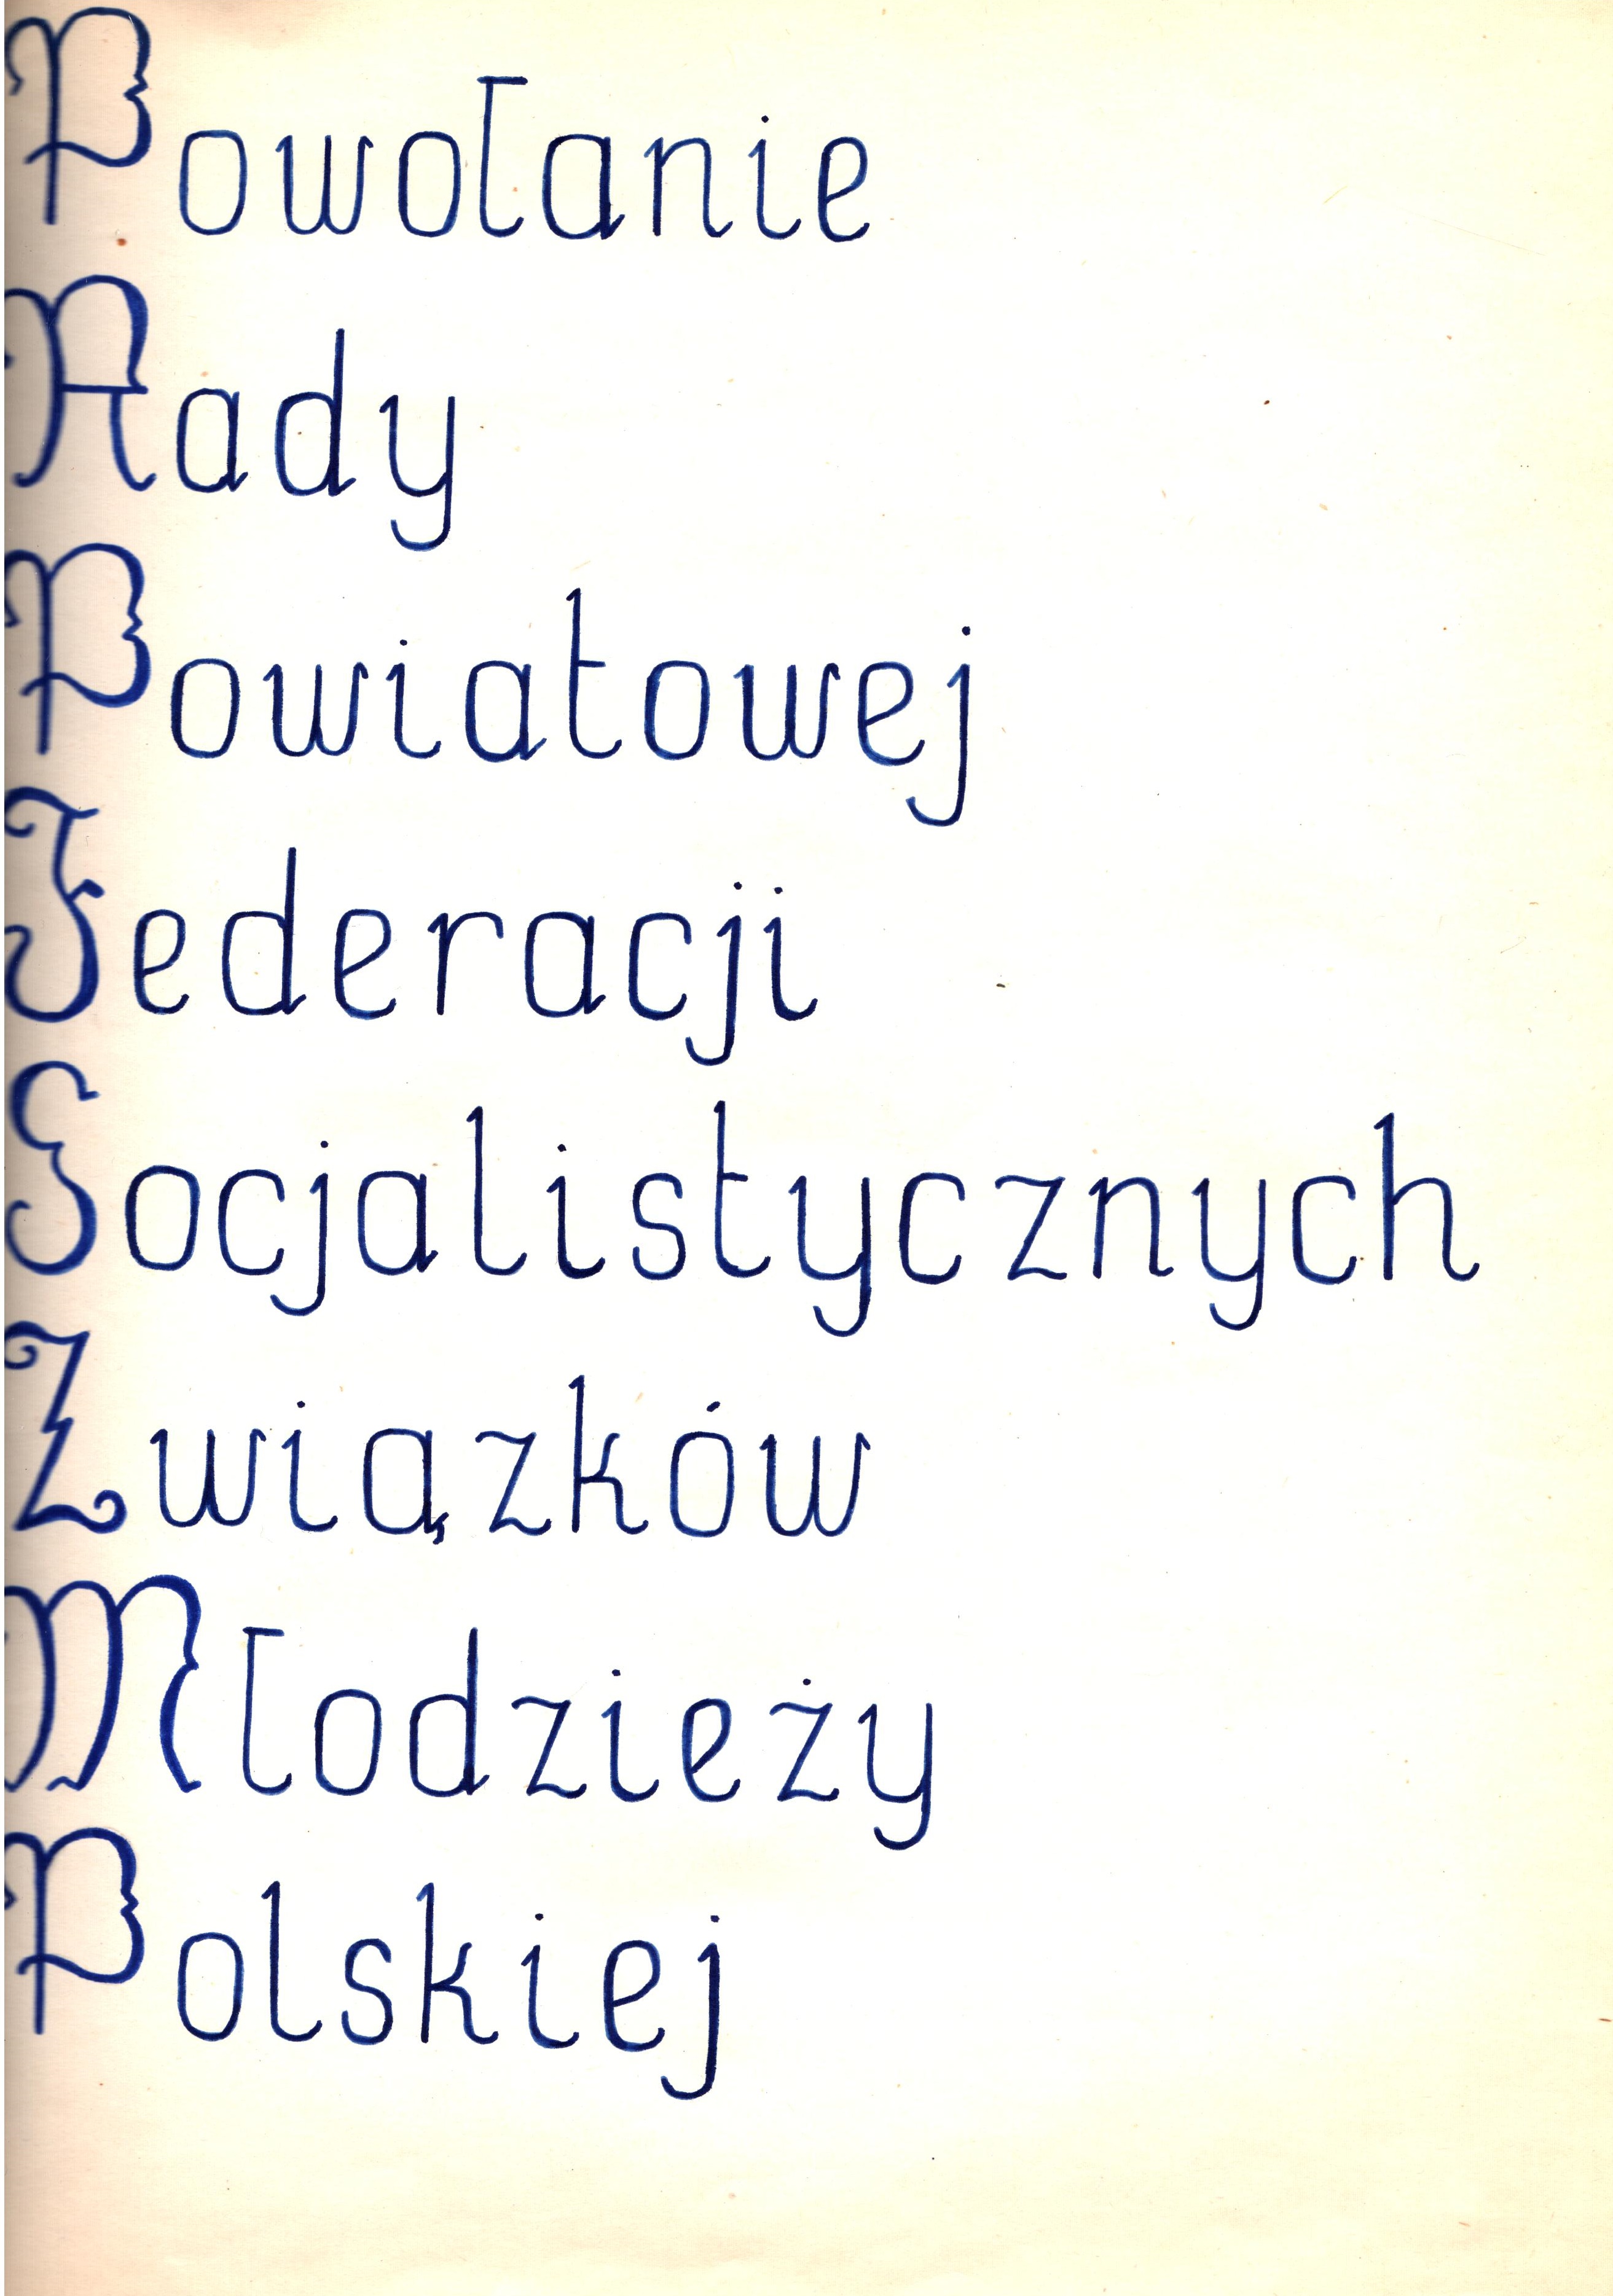 Powołanie
Rady
Powiatowej
Federacji
Socjalistycznych
Związków
Młodzieży
Polskiej